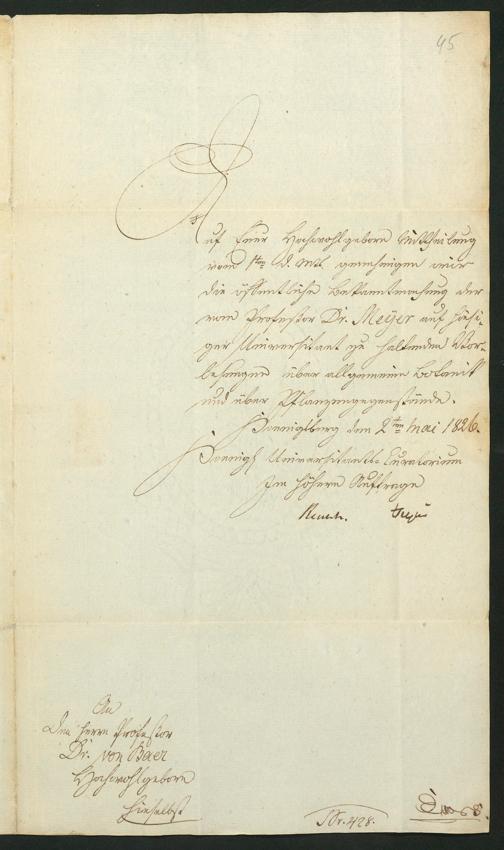 45
Auf Euer Hochwohlgeboren Mittheilung
vom 1ten d. Mts. genehmigen wir
die öffentliche Bekanntmachung der
vom Professor Dr. Meyer auf hiesi-
ger Universitaet zu haltenden Vor-
lesungen über allgemeine Botanik
und über Pflanzengegenstände.
Koenigsberg den 2ten Mai 1826.
Koenigl Universitaets-Curatorium
Im höhern Auftrage
Reusch.
An
den Herrn Professor
Dr. von Baer
Hochwohlgeboren
hieselbst
Nr. 428.